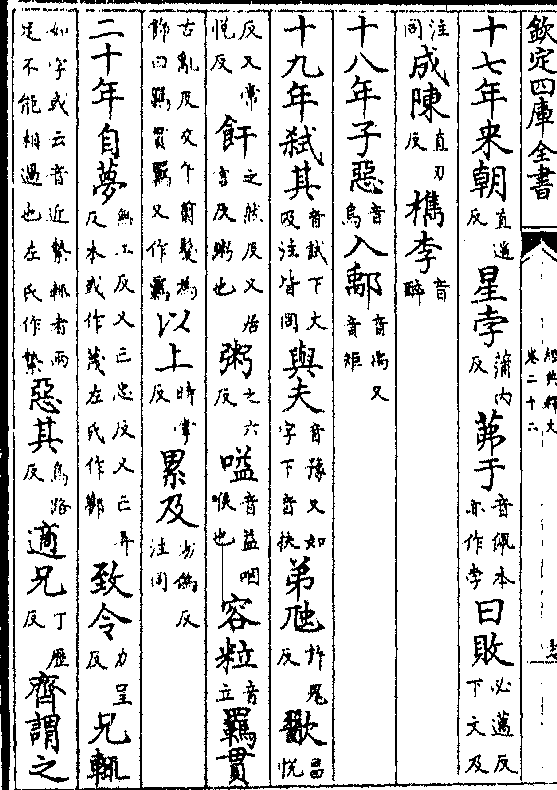 欽定四庫全書
經典釋文
卷二十二
十七年来朝直遥反星孛蒲内反茀于音佩本亦作孛曰敗必邁反下文及
注同成陳直刃反檇李音醉
十八年子惡音烏入鄅音禹又音矩
十九年弑其音試下文及注皆同與夫音豫又如字下音扶弟虺許鬼反歠昌悦
反又常悦反飦之然反又居言反粥也粥之六反嗌音益咽喉也容粒音立羈貫
古亂反交午翦髮爲飾曰羈貫羈又作羇以上時掌反累及劣僞反注同
二十年自夢無工反又亡忠反又亡弄反本或作蔑左氏作鄸致令力呈反兄輒
如字或云音近縶輒者兩足不能相過也左氏作縶惡其烏路反適兄丁歷反齊謂之